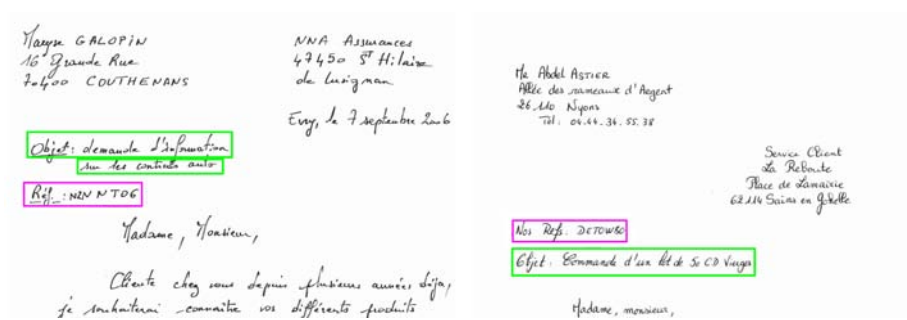 Maryse GALOPIN
16 Grande Rue
70400 COUTHENANS
NNA Assurances
47450 St Hilaire
de Lusignan
Evry, le 7 septembre 2006
Objet : demande d'information
sur les contrats auto
Réf. : NZN N TOG
Madame, Monsieur,
Cliente chez vous depuis plusieurs années déjà,
je souhaiterai connaître vos différents produits
Mr Abdel ASTIER
Allée des rameaux d'Argent
26110 Nyons
Tél : 04.44.34.55.38
Service Client
La Reboute
Place de Lamairie
62114 Sains en Gohelle
Nos Refs. DETOWBO
Objet : Commande d'un lot de 50 CD Vierges
Madame, monsieur,